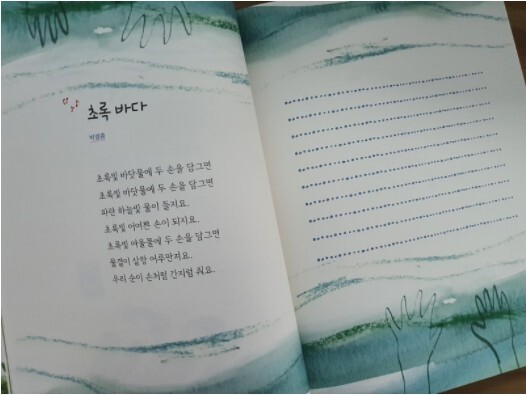 초록 바다
박경종
초록빛 바닷물에 두 손을 담그면
초록빛 바닷물에 두 손을 담그면
파란 하늘빛 물이 들지요.
초록빛 여여쁜 손이 되지요.
초록빛 여울물에 두 손을 담그면
물결이 살랑 어루만져요.
우리 순이 손처럼 간지럼 줘요.